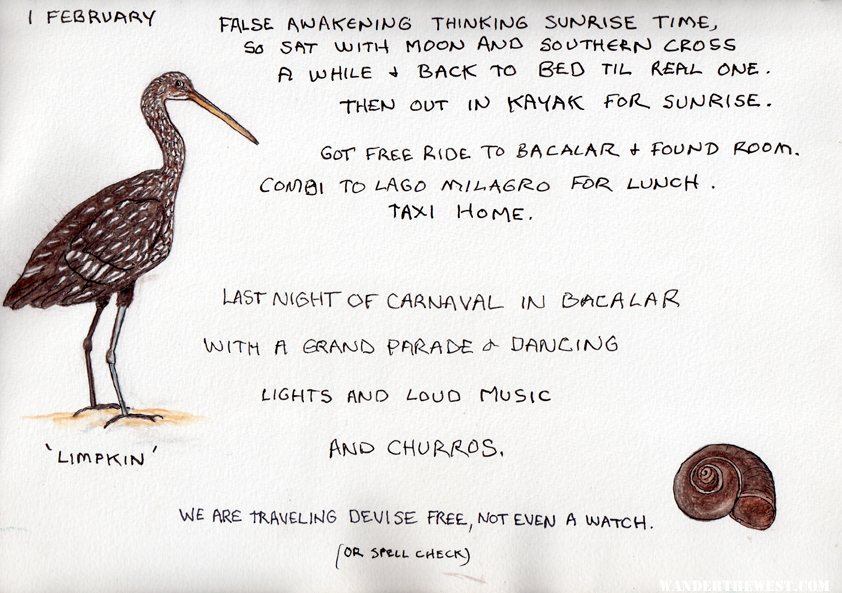 1 FEBRUARY
FALSE AWAKENING THINKING SUNRISE TIME,
SO SAT WITH MOON AND SOUTHERN CROSS
A WHILE & BACK TO BED TIL REAL ONE.
THEN OUT IN KAYAK FOR SUNRISE.
GOT FREE RIDE TO BACALAR & FOUND ROOM.
COMBI TO LAGO MILAGRO FOR LUNCH.
TAXI HOME.
LAST NIGHT OF CARNAVAL IN BACALAR
WITH A GRAND PARADE & DANCING
LIGHTS AND LOUD MUSIC
AND CHURROS.
'LIMPKIN'
WE ARE TRAVELING DEVISE FREE, NOT EVEN A WATCH.
(OR SPELL CHECK)
WANDERTHEWEST.COM